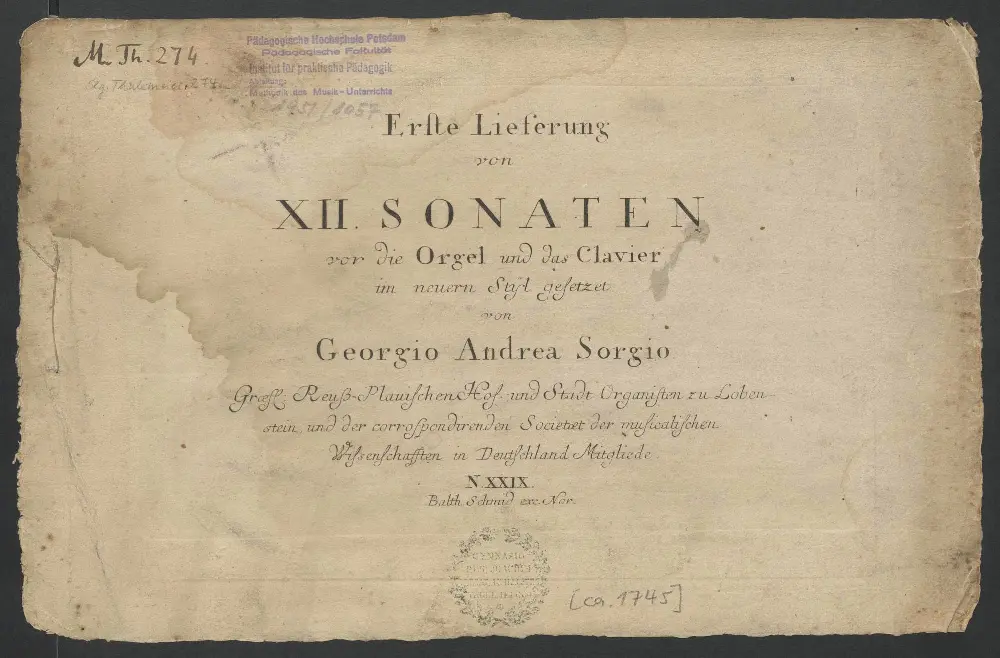 M. Th. 274.
Pädagogische Hochschule Potsdam
Pädagogische Fakultät
Institut für praktische Pädagogik
Methodik des Musik-Unterrichts
1951/1057
Erſte Lieferung
von
XII. SONATEN
vor die Orgel und das Clavier
im neuern Styl geſetzet
von
Georgio Andrea Sorgio
Græfl. Reuß-Plauiſchen Hof- und Stadt Organiſten zu Loben-
ſtein, und der correſpondirenden Societæt der muſicaliſchen
Wiſſenſchafften in Deutſchland Mitgliede.
N. XXIX.
Balth. Schmid exc. Nor.
GYMNASIO
[ca. 1745]